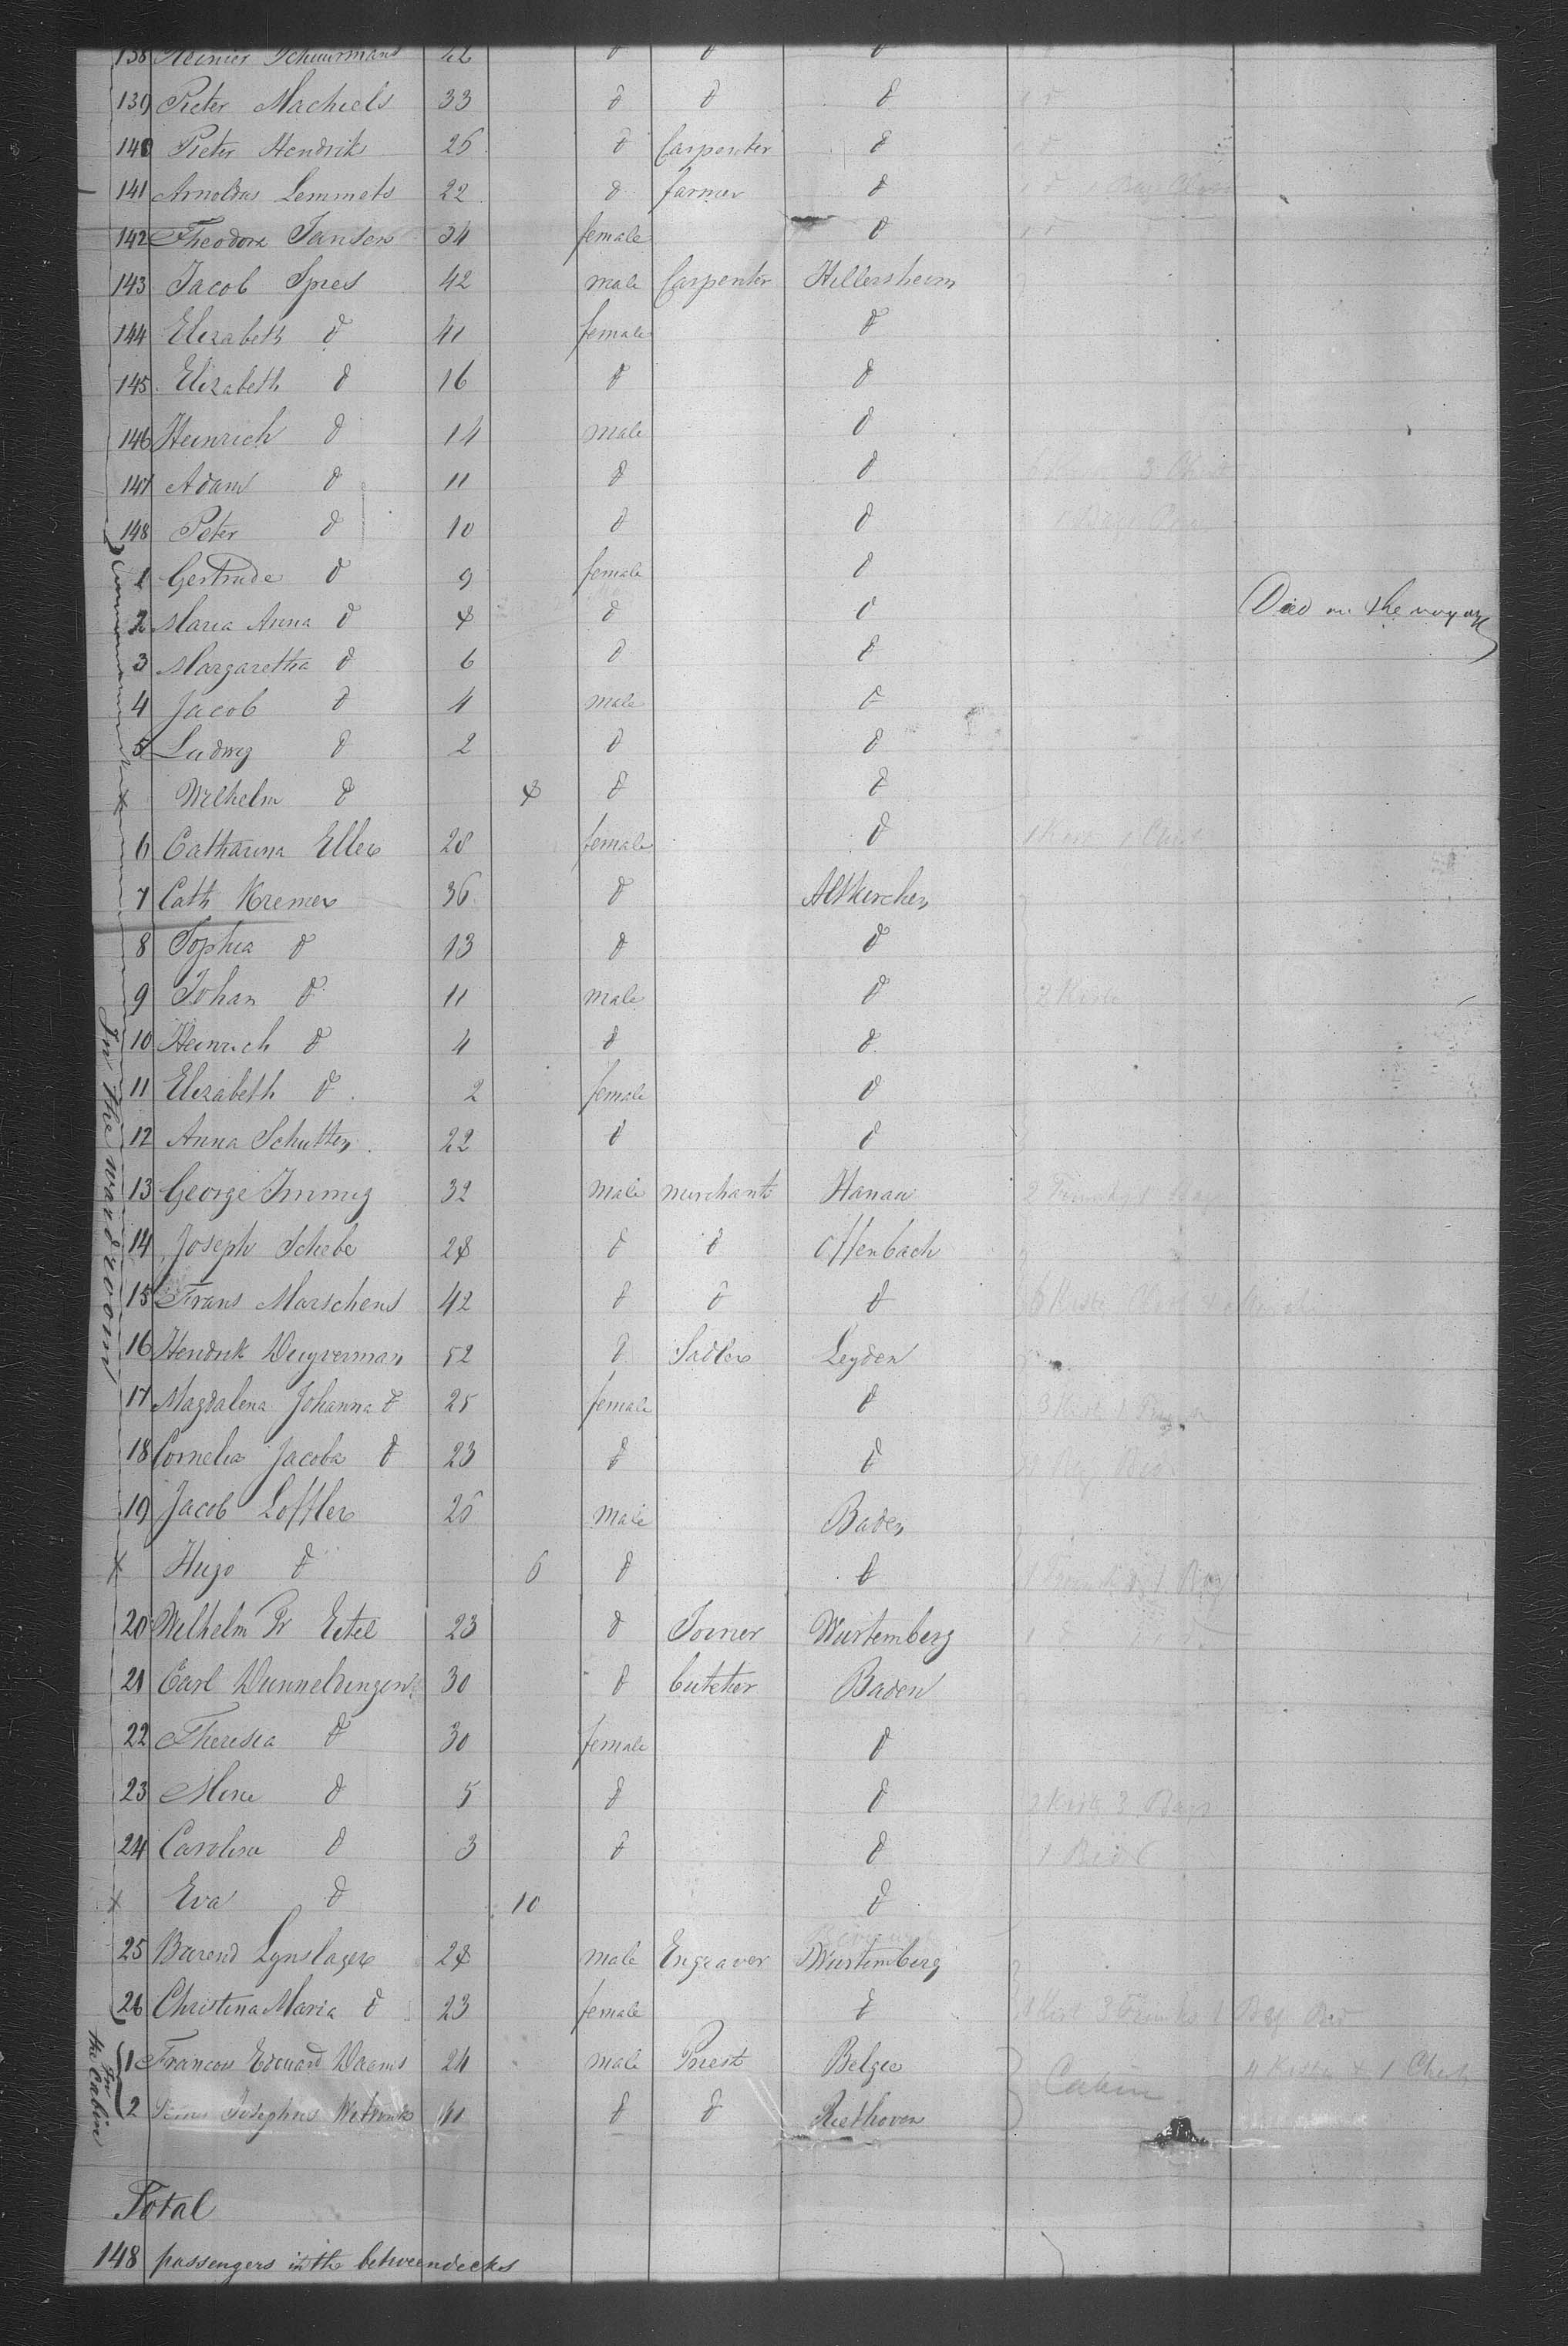 138 Reinier Schuurmans 42 d d d
139 Pieter Machiels 33 d d d 1 d
140 Pieter Hendriks 25 d Carpenter d 1 d
141 Arnoldus Lemmets 22 d farmer d 1 d
142 Theodora Jansen 34 female d 1 d
143 Jacob Spies 42 male Carpenter Hillersheim
144 Elizabeth d 41 female d
145 Elizabeth d 16 d d
146 Heinrich d 14 male d
147 Adam d 11 d d 3 Chest
148 Peter d 10 d d
1 Gertrude d 9 female d
2 Maria Anna d 8 d d Died on the voyage
3 Margaretha d 6 d d
4 Jacob d 4 male d
5 Ludwig d 2 d d
x Wilhelm d 8 d d
6 Catharina Eller 28 female d 1 Kist 1 Chest
7 Cath Kremer 36 d Altkirchen
8 Sophia d 13 d d
9 Johan d 11 male d 2 Kiste
10 Heinrich d 4 d d
11 Elizabeth d 2 female d
12 Anna Schutten 22 d d
13 George Immig 32 male merchant Hanau 2 Trunks 1 Bag
14 Joseph Schebe 28 d d Offenbach
15 Frans Marschens 42 d d d
16 Hendrik Duyverman 52 d Sadler Leyden
17 Magdalena Johanna d 25 female d 3 Kist 1
18 Cornelia Jacoba d 23 d d
19 Jacob Loffler 26 male Baden
x Hugo d 6 d d 1 Trunk 1 Bag
20 Wilhelm Fr Eitel 23 d Joiner Wurtemberg 1 d
21 Carl Dunneldingen 30 d butcher Baden
22 Theresia d 30 female d
23 Mine d 5 d d 2 Kist 3 Bags
24 Carolina d 3 d d 1 Bed
x Eva d 10 d
25 Barend Lynslager 28 male Engraver Wurtemberg
26 Christina Maria d 23 female d 1 Kist 3 Trunks 1 Bag Bed
1 Francois Edouard Daems 24 male Priest Belgie Cabin 4 Kisten & 1 Chest
2 Josephus 41 d d Riethoven
In the underroom
In the Cabin
Total
148 passengers in the betweendecks